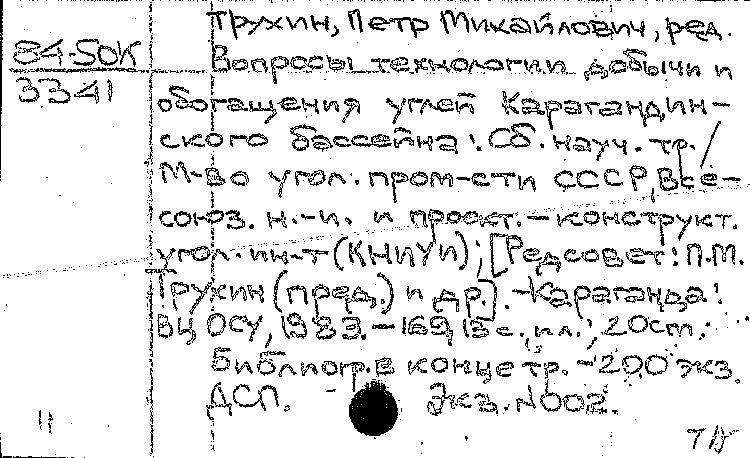 Трухин, Петр Михайлович, ред.
84-50К
Вопросы технологии добычи и
3341
обогащения углей Карагандин-
ского бассейна: Сб. науч. тр. /
М-во угол. пром-сти СССР, Всё-
союз. н.-и. и проект.-конструкт.
угол. ин-т (КНИУИ); [Редсовет: П.М.
Трухин (пред.) и др.]. - Караганда:
ВЦ ОСУ, 1983. - 169, с., ил.; 20 см.
Библиогр. в конце тр. - 200 экз.
ДСП. - Экз. N 002.
11